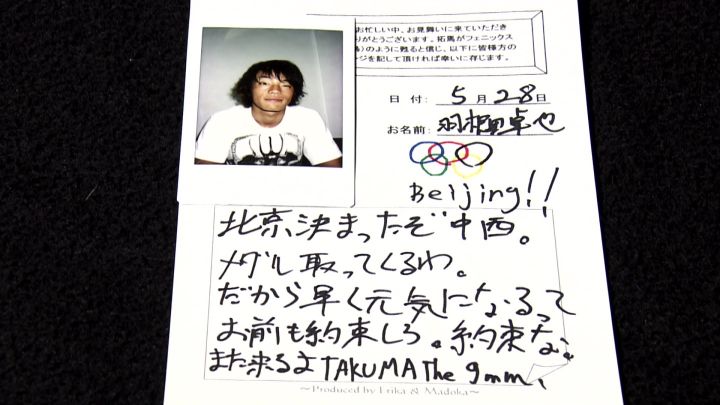 お忙しい中、お見舞いに来ていただき
りがとうございます。拓馬がフェニックス
のように甦ると信じ、以下に皆様方の
ージを記して頂ければ幸いに存じます。
日付: 5月28日
お名前: 羽根田卓也
Beijing!!
北京決まったぞ中西。
メダル取ってくるわ。
だから早く元気になるって
お前も約束しろ。約束な。
また来るよTAKUMA The 9mm、
~Produced by Erika & Madoka~